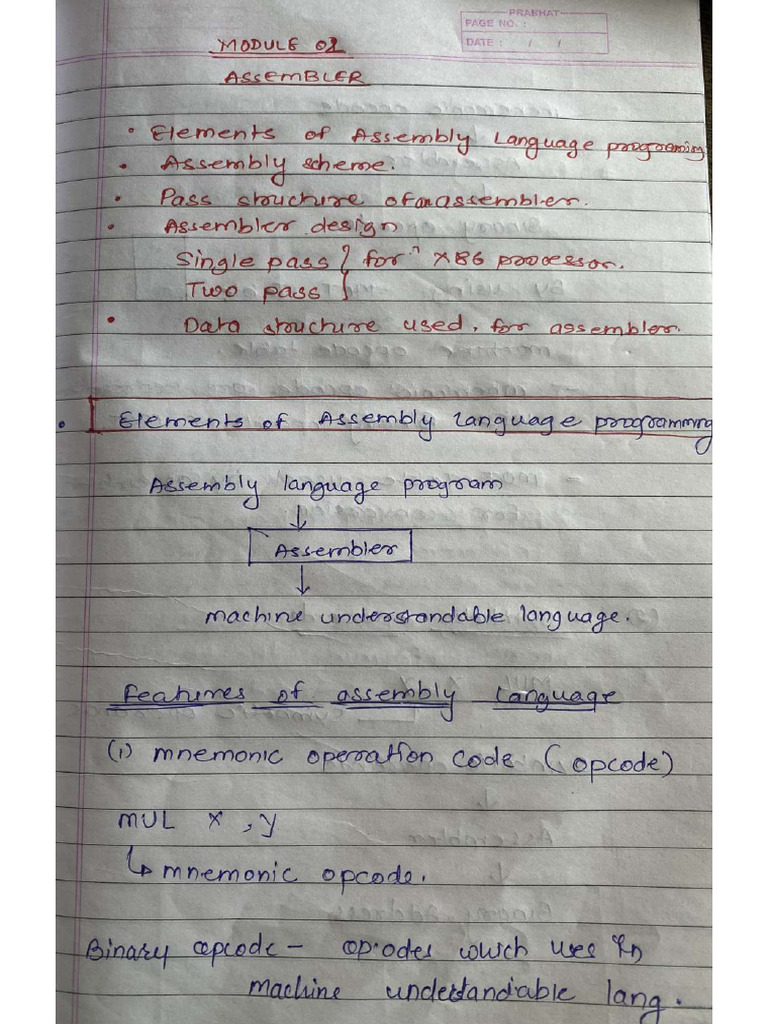 PRABHAT
PAGE NO. :
DATE : / /
MODULE 02
ASSEMBLER
• Elements of Assembly Language programing
• Assembly scheme.
• Pass structure of an assembler.
• Assembler design
Single pass } for X86 processor.
Two pass }
• Data structure used, for assembler.
• Elements of Assembly language programming
Assembly language program
↓
Assembler
↓
machine understandable language.
Features of assembly language
(i) mnemonic operation code (opcode)
MUL x , y
↳ mnemonic opcode.
Binary opcode – opcodes which uses in
machine understandable lang.